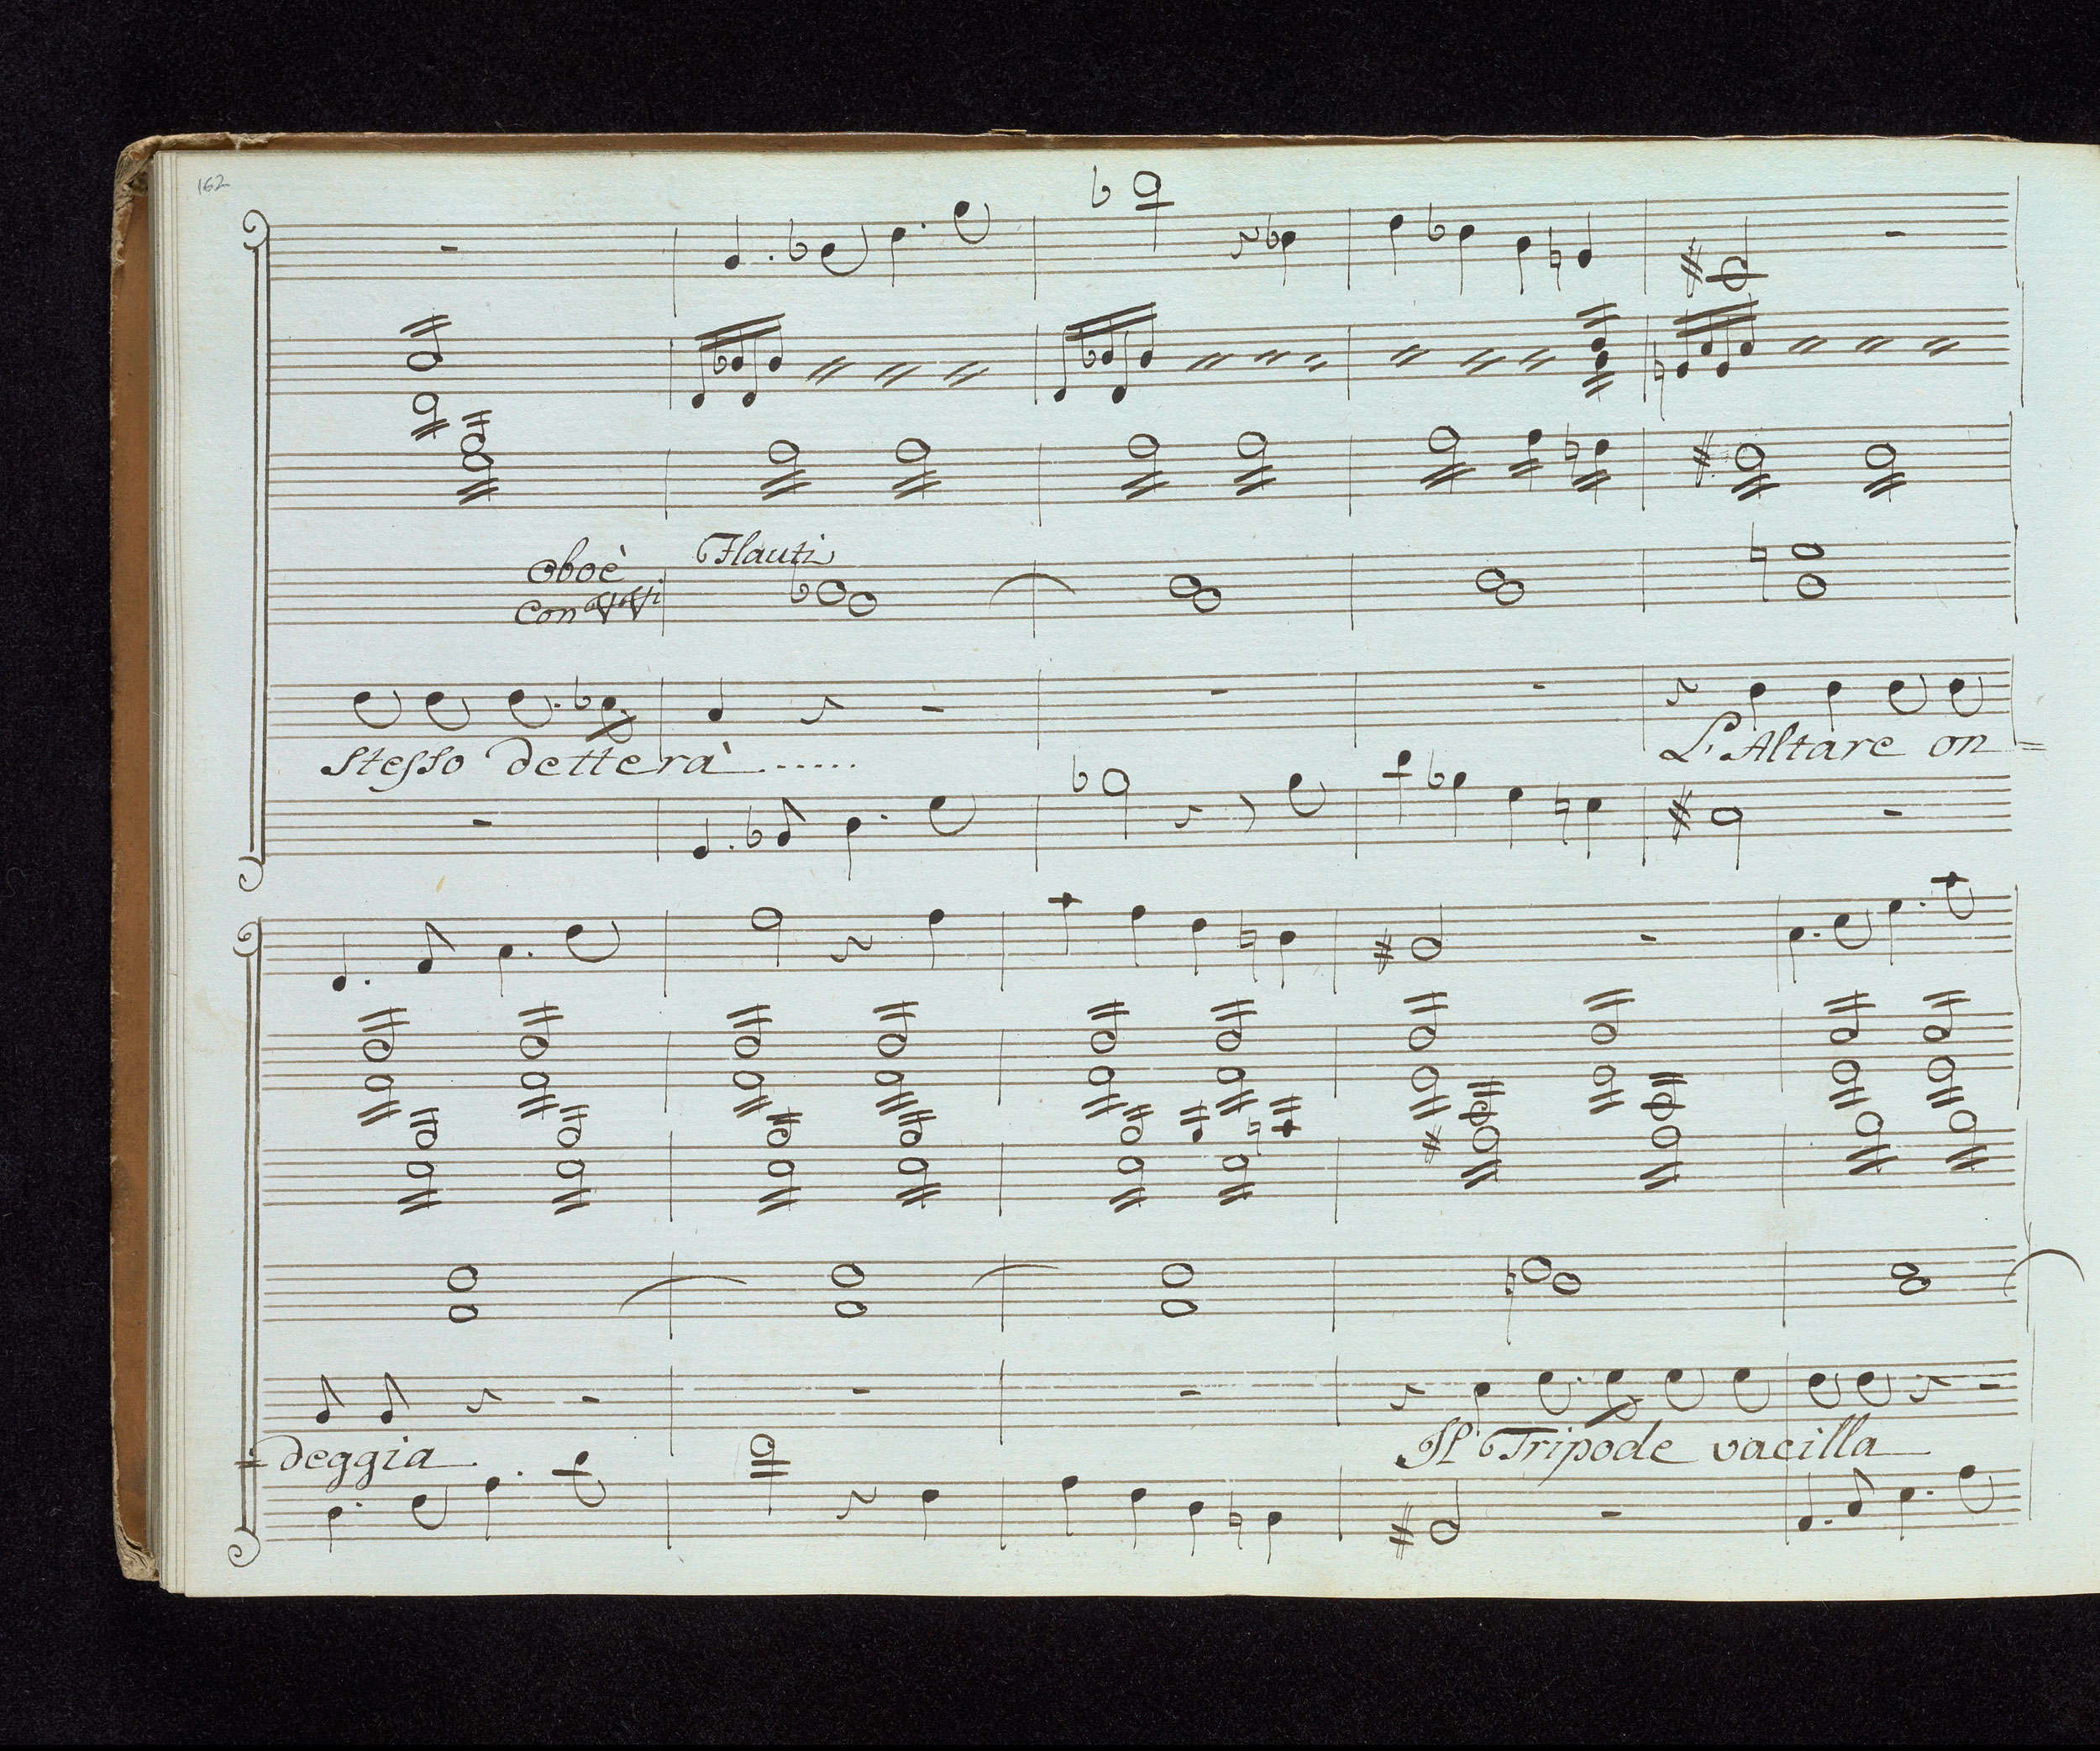 162
Oboè Flauti
Con VVni
Stesso detterà ......
L'Altare on=
=deggia
Il Tripode vacilla